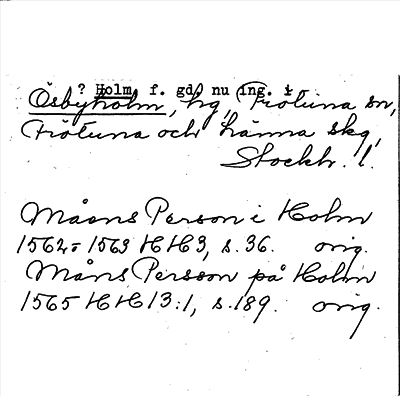 ? Holm, f. gd, nu ing. i
Ösbyholm, hg, Frötuna sn,
Frötuna och Länna skg,
Stockh. l.
Måens Person i Holm
1562-1563 HH3, s. 36. orig.
Måns Persson på Holm
1565 HH13:1, s. 189. orig.